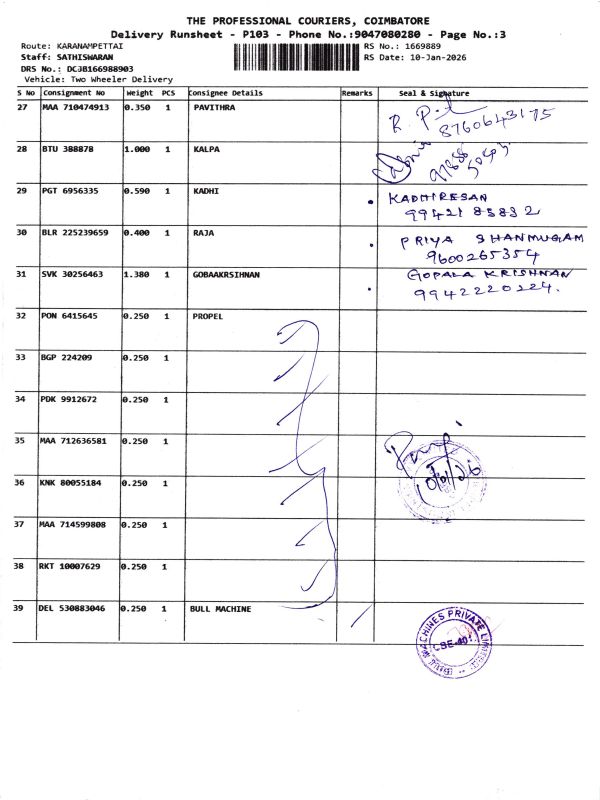 THE PROFESSIONAL COURIERS, COIMBATORE
Delivery Runsheet - P103 - Phone No.:9047080280 - Page No.:3
Route: KARANAMPETTAI RS No.: 1669889
Staff: SATHISWARAN RS Date: 10-Jan-2026
DRS No.: DCJB166988903
Vehicle: Two Wheeler Delivery
S No Consignment No Weight PCS Consignee Details Remarks Seal & Signature
27 MAA 710474913 0.350 1 PAVITHRA
8760643175
28 BTU 388878 1.000 1 KALPA
29 PGT 6956335 0.590 1 KADHI KADHIRESAN
99421 85832
30 BLR 225239659 0.400 1 RAJA PRIYA SHANMUGAM
9600265354
31 SVK 30256463 1.380 1 GOBAAKRSIHNAN GOPALA KRISHNAN
9942220224.
32 PON 6415645 0.250 1 PROPEL
33 BGP 224209 0.250 1
34 PDK 9912672 0.250 1
35 MAA 712636581 0.250 1
36 KNK 80055184 0.250 1
10/01/26
37 MAA 714599808 0.250 1
38 RKT 10007629 0.250 1
39 DEL 530883046 0.250 1 BULL MACHINE
MACHINES PRIVATE